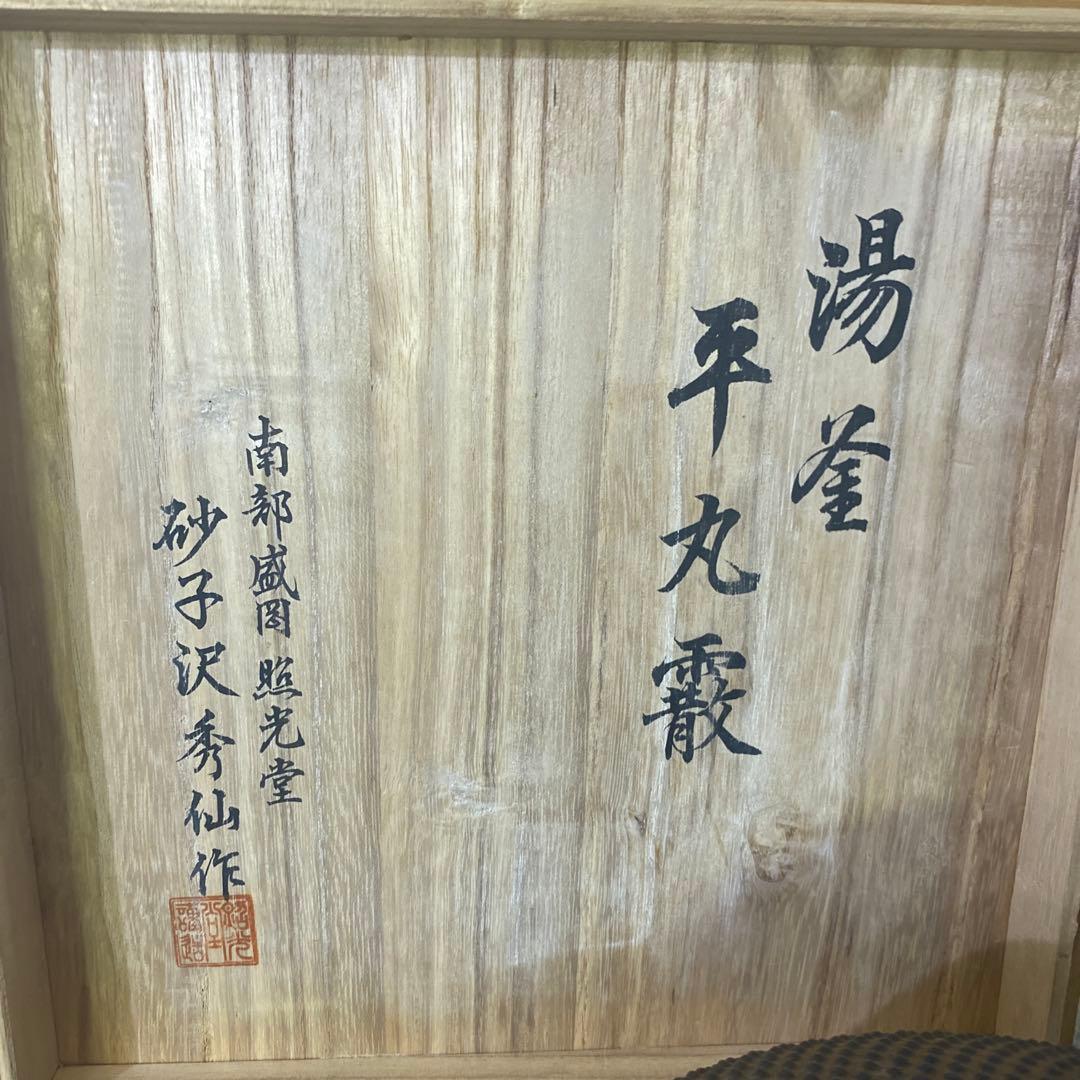 湯釜
平丸霰
南部盛岡 照光堂
砂子沢秀仙作